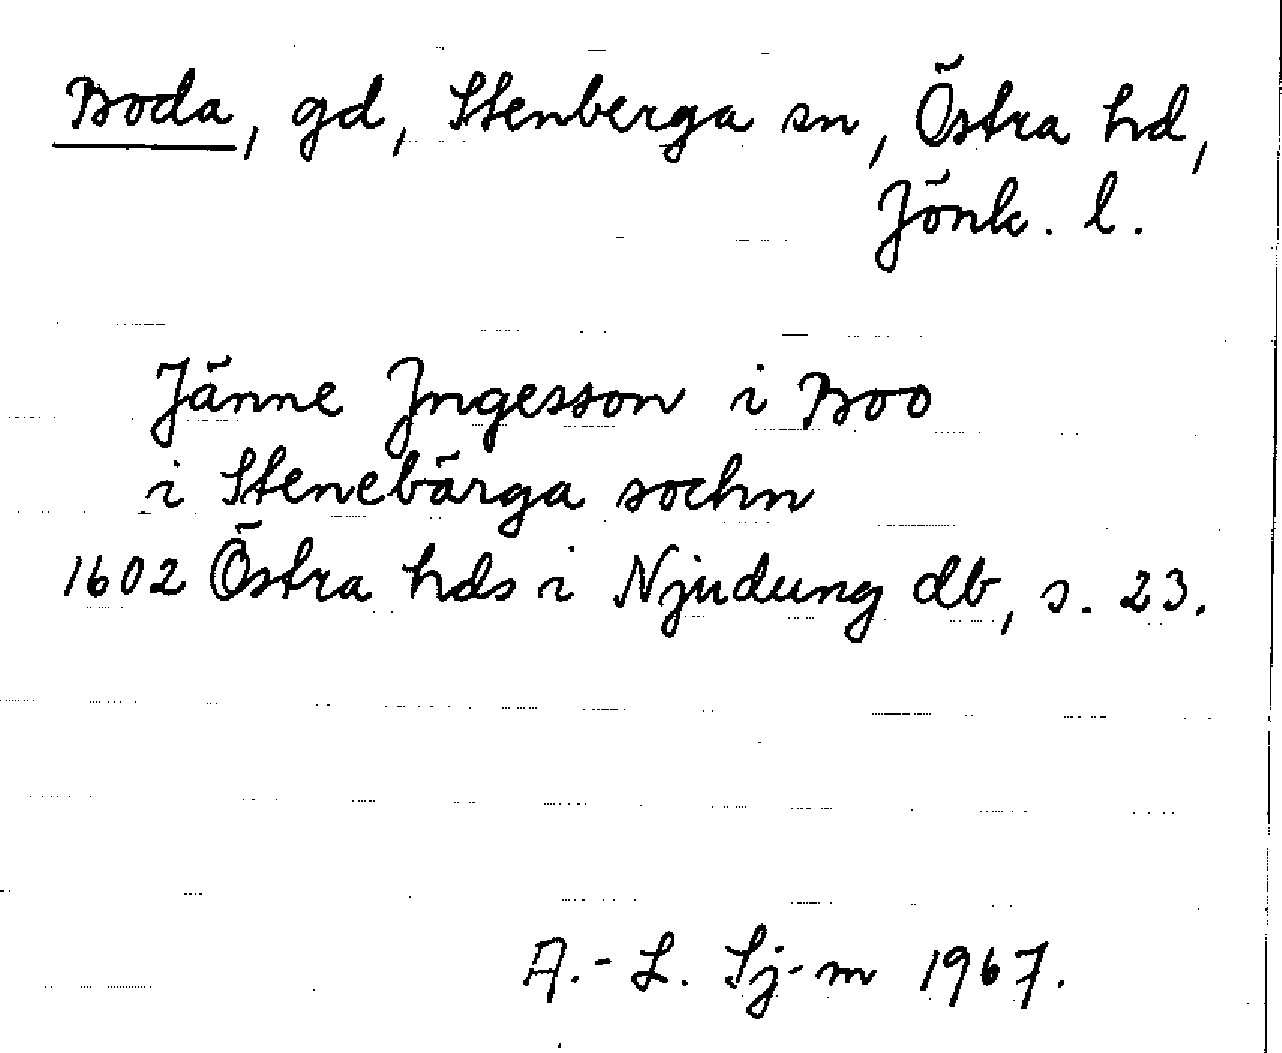 Boda, gd, Stenberga sn, Östra hd,
Jönk. l.
Jänne Jngesson i Boo
i Stenebärga sochn
1602 Östra hds i Njudung db, s. 23.
A.-L. Sj-m 1967.